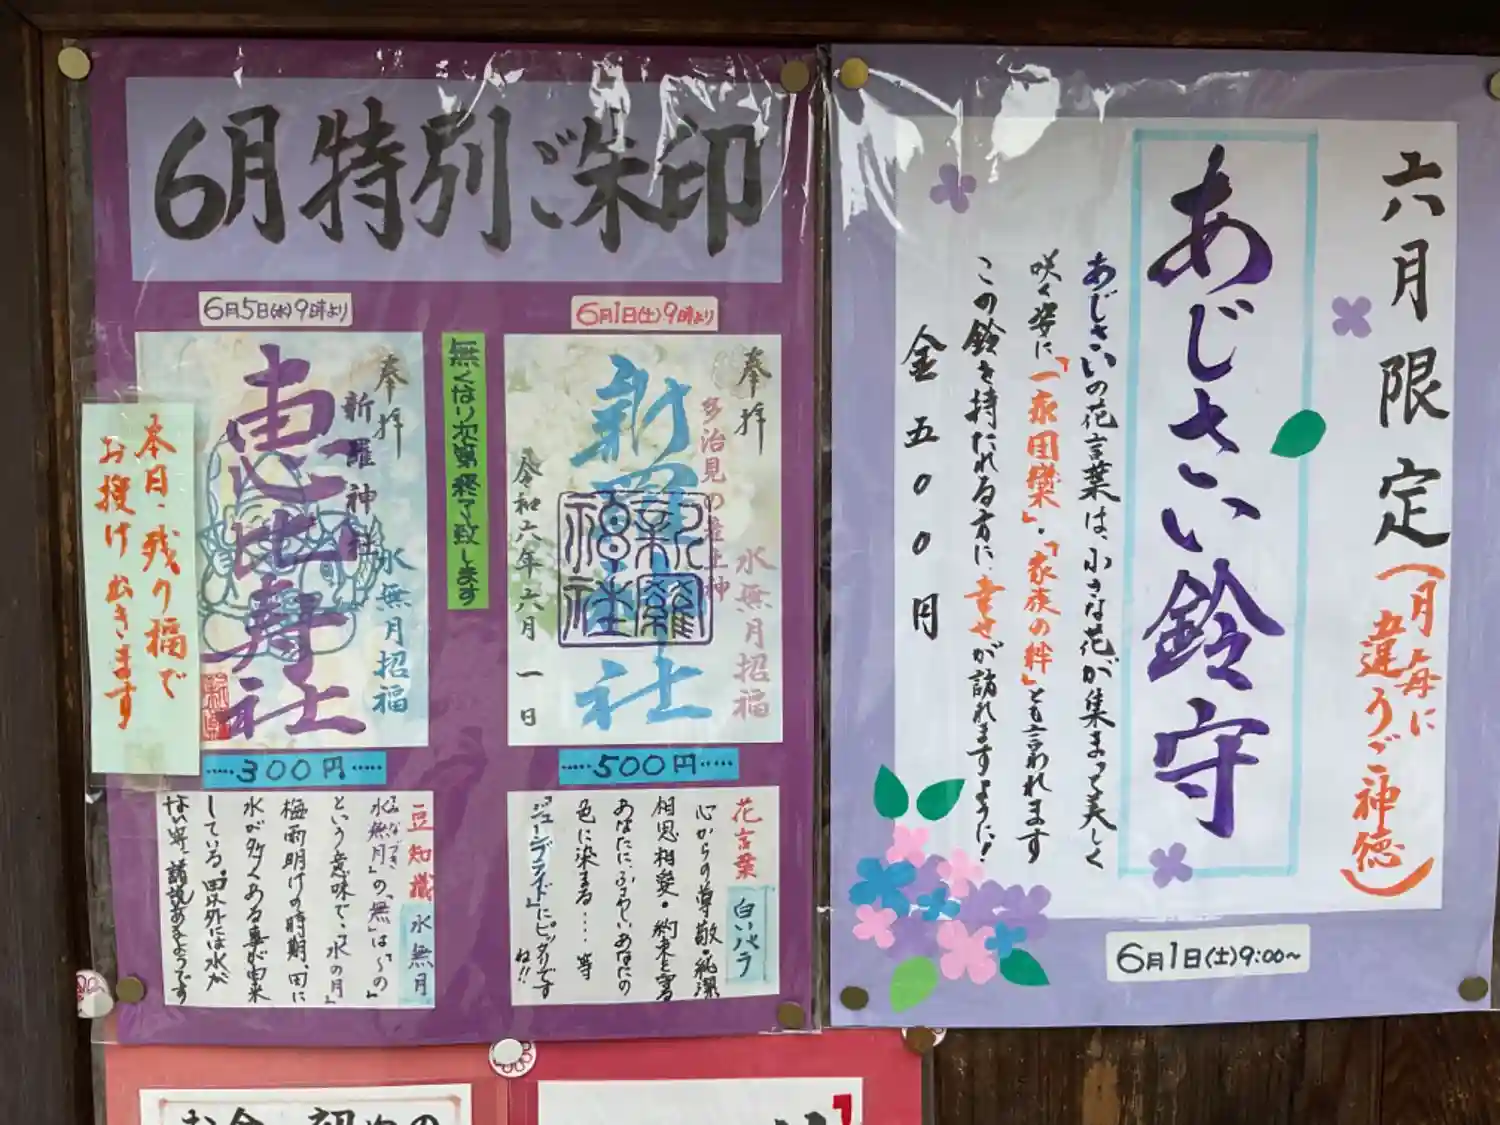 6月特別ご朱印
6月5日(水)9時より
6月1日(土)9時より
無くなり次第終了致します
奉拝
新羅神社
恵比寿社
水無月招福
本日、残り福で
お授けできます
奉拝
多治見の産土神
新羅神社
新羅
神社
水無月招福
令和六年六月一日
300円
500円
豆知識
水無月
みなづき
水無月」の「無」は「〜の」
という意味で、「水の月」
梅雨明けの時期、田に
水が多くある事が由来
している。田以外には水が
ない等、諸説あるようです
花言葉
白いバラ
心からの尊敬・純潔
相思相愛・約束を守る
あなたに、ふさわしいあなたの
色に染まる… 等
「ジューンブライド」にピッタリです
ね!!
六月限定(月毎に
違うご神徳)
あじさい鈴守
あじさいの花言葉は、小さな花が集まって美しく
咲く姿に「一家団欒」・「家族の絆」とも言われます
この鈴を持たれる方に、幸せが訪れますように!
金五00円
6月1日(土)9:00〜